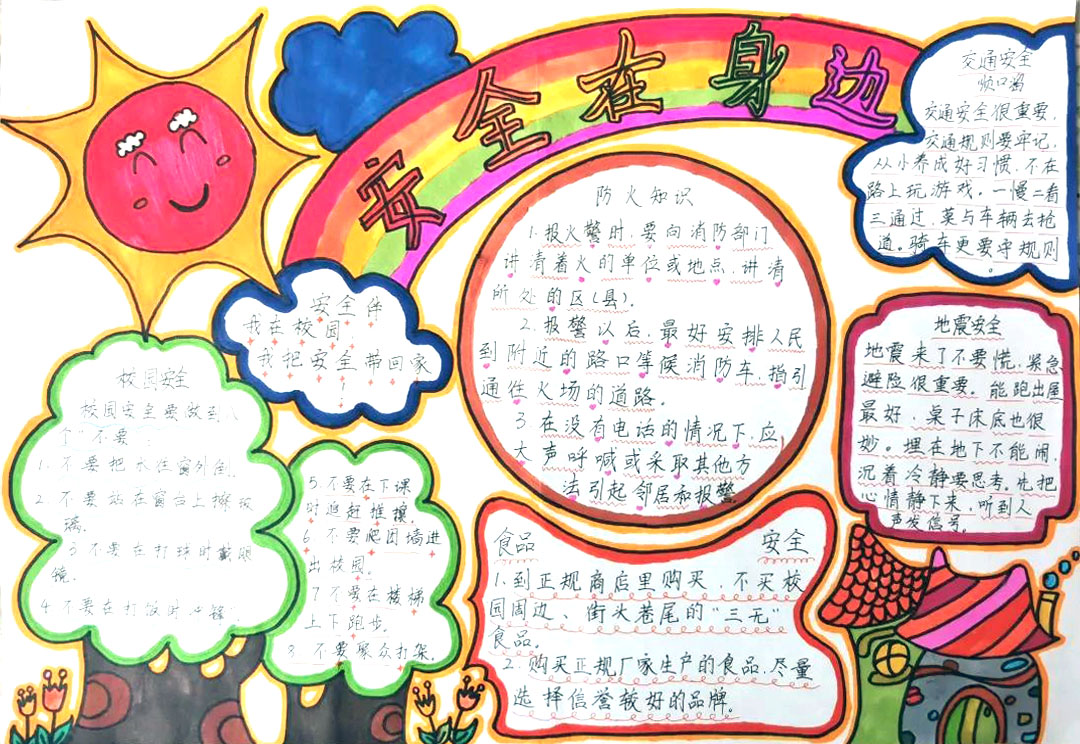 安全在身边
交通安全
顺口溜
交通安全很重要,
交通规则要牢记,
从小养成好习惯,不在
路上玩游戏。一慢二看
三通过,莫与车辆去抢
道。骑车更要守规则
。
安全伴
我在校园,
我把安全带回家
!
防火知识
1.报火警时,要向消防部门
讲清着火的单位或地点,讲清
所处的区(县)。
2.报警以后,最好安排人民
到附近的路口等候消防车,指引
通往火场的道路。
3.在没有电话的情况下,应
大声呼喊或采取其他方
法引起邻居和报警
地震安全
地震来了不要慌,紧急
避险很重要。能跑出屋
最好,桌子床底也很
妙。埋在地下不能闹,
沉着冷静要思考,也把
心情静下来,听到人
声发信号。
校园安全
校园安全要做到八
个"不要":
1.不要把水往窗外倒。
2.不要站在窗台上擦玻
璃。
3不要在打球时戴眼
镜。
4不要在打饭时冲锋
5.不要在下课
时追赶推搡。
6不要爬围墙进
出校园。
7不要在楼梯
上下跑步。
8.不要聚众打架。
食品 安全
1.到正规商店里购买,不买校
园周边、街头巷尾的"三无"
食品。
2.购买正规厂家生产的食品,尽量
选择信誉较好的品牌。